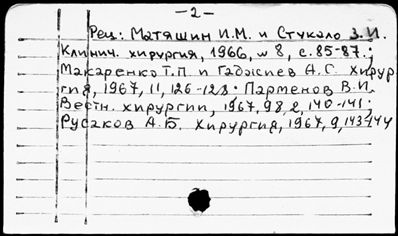 -2-
Рец: Матяшин И.М. и Стукало З.И.
Клинич. хирургия, 1966, № 8, с. 85-87.;
Макаренко Т.П. и Гаджиев А.С. Хирур
гия, 1967, 11, 126-128; Парменов В.И.
Вестн. хирургии, 1967, 98, 2, 140-141;
Русаков А.Б. Хирургия, 1967, 9, 143-144